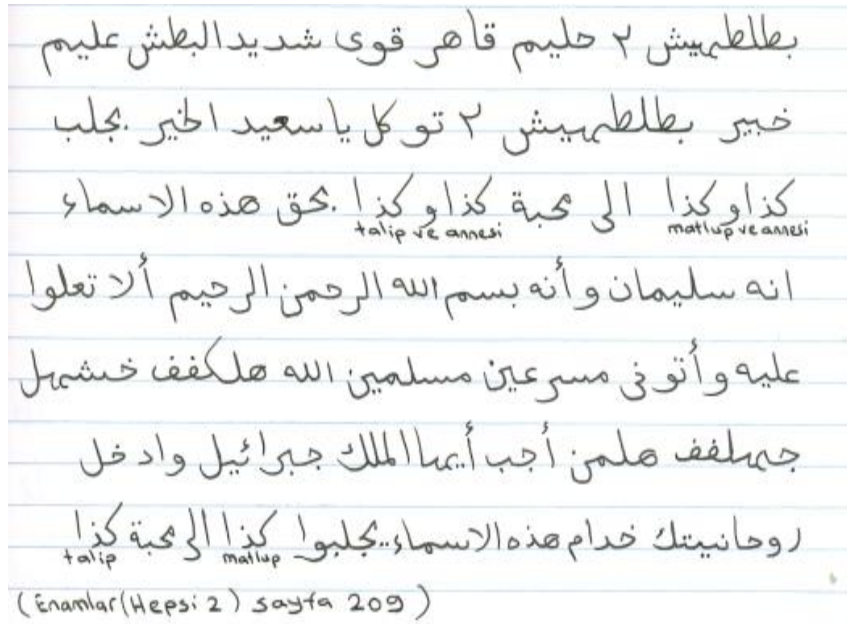 بطلطهيش ٢ حليم قاهر قوى شديد البطش عليم
خبير بطلطهيش ٢ توكل يا سعيد الخير بجلب
كذا وكذا الى محبة كذا وكذا بحق هذه الاسماء
matlup ve annesi talip ve annesi
انه سليمان وأنه بسم الله الرحمن الرحيم ألا تعلوا
عليه وأتونى مسرعين مسلمين الله هلكفف خشهل
جهلفف هلمن أجب أيها الملك جبرائيل وادخل
روحانيتك خدام هذه الاسماء.. يجلبوا كذا الى محبة كذا
matlup talip
(Enamlar (Hepsi 2) sayfa 209)